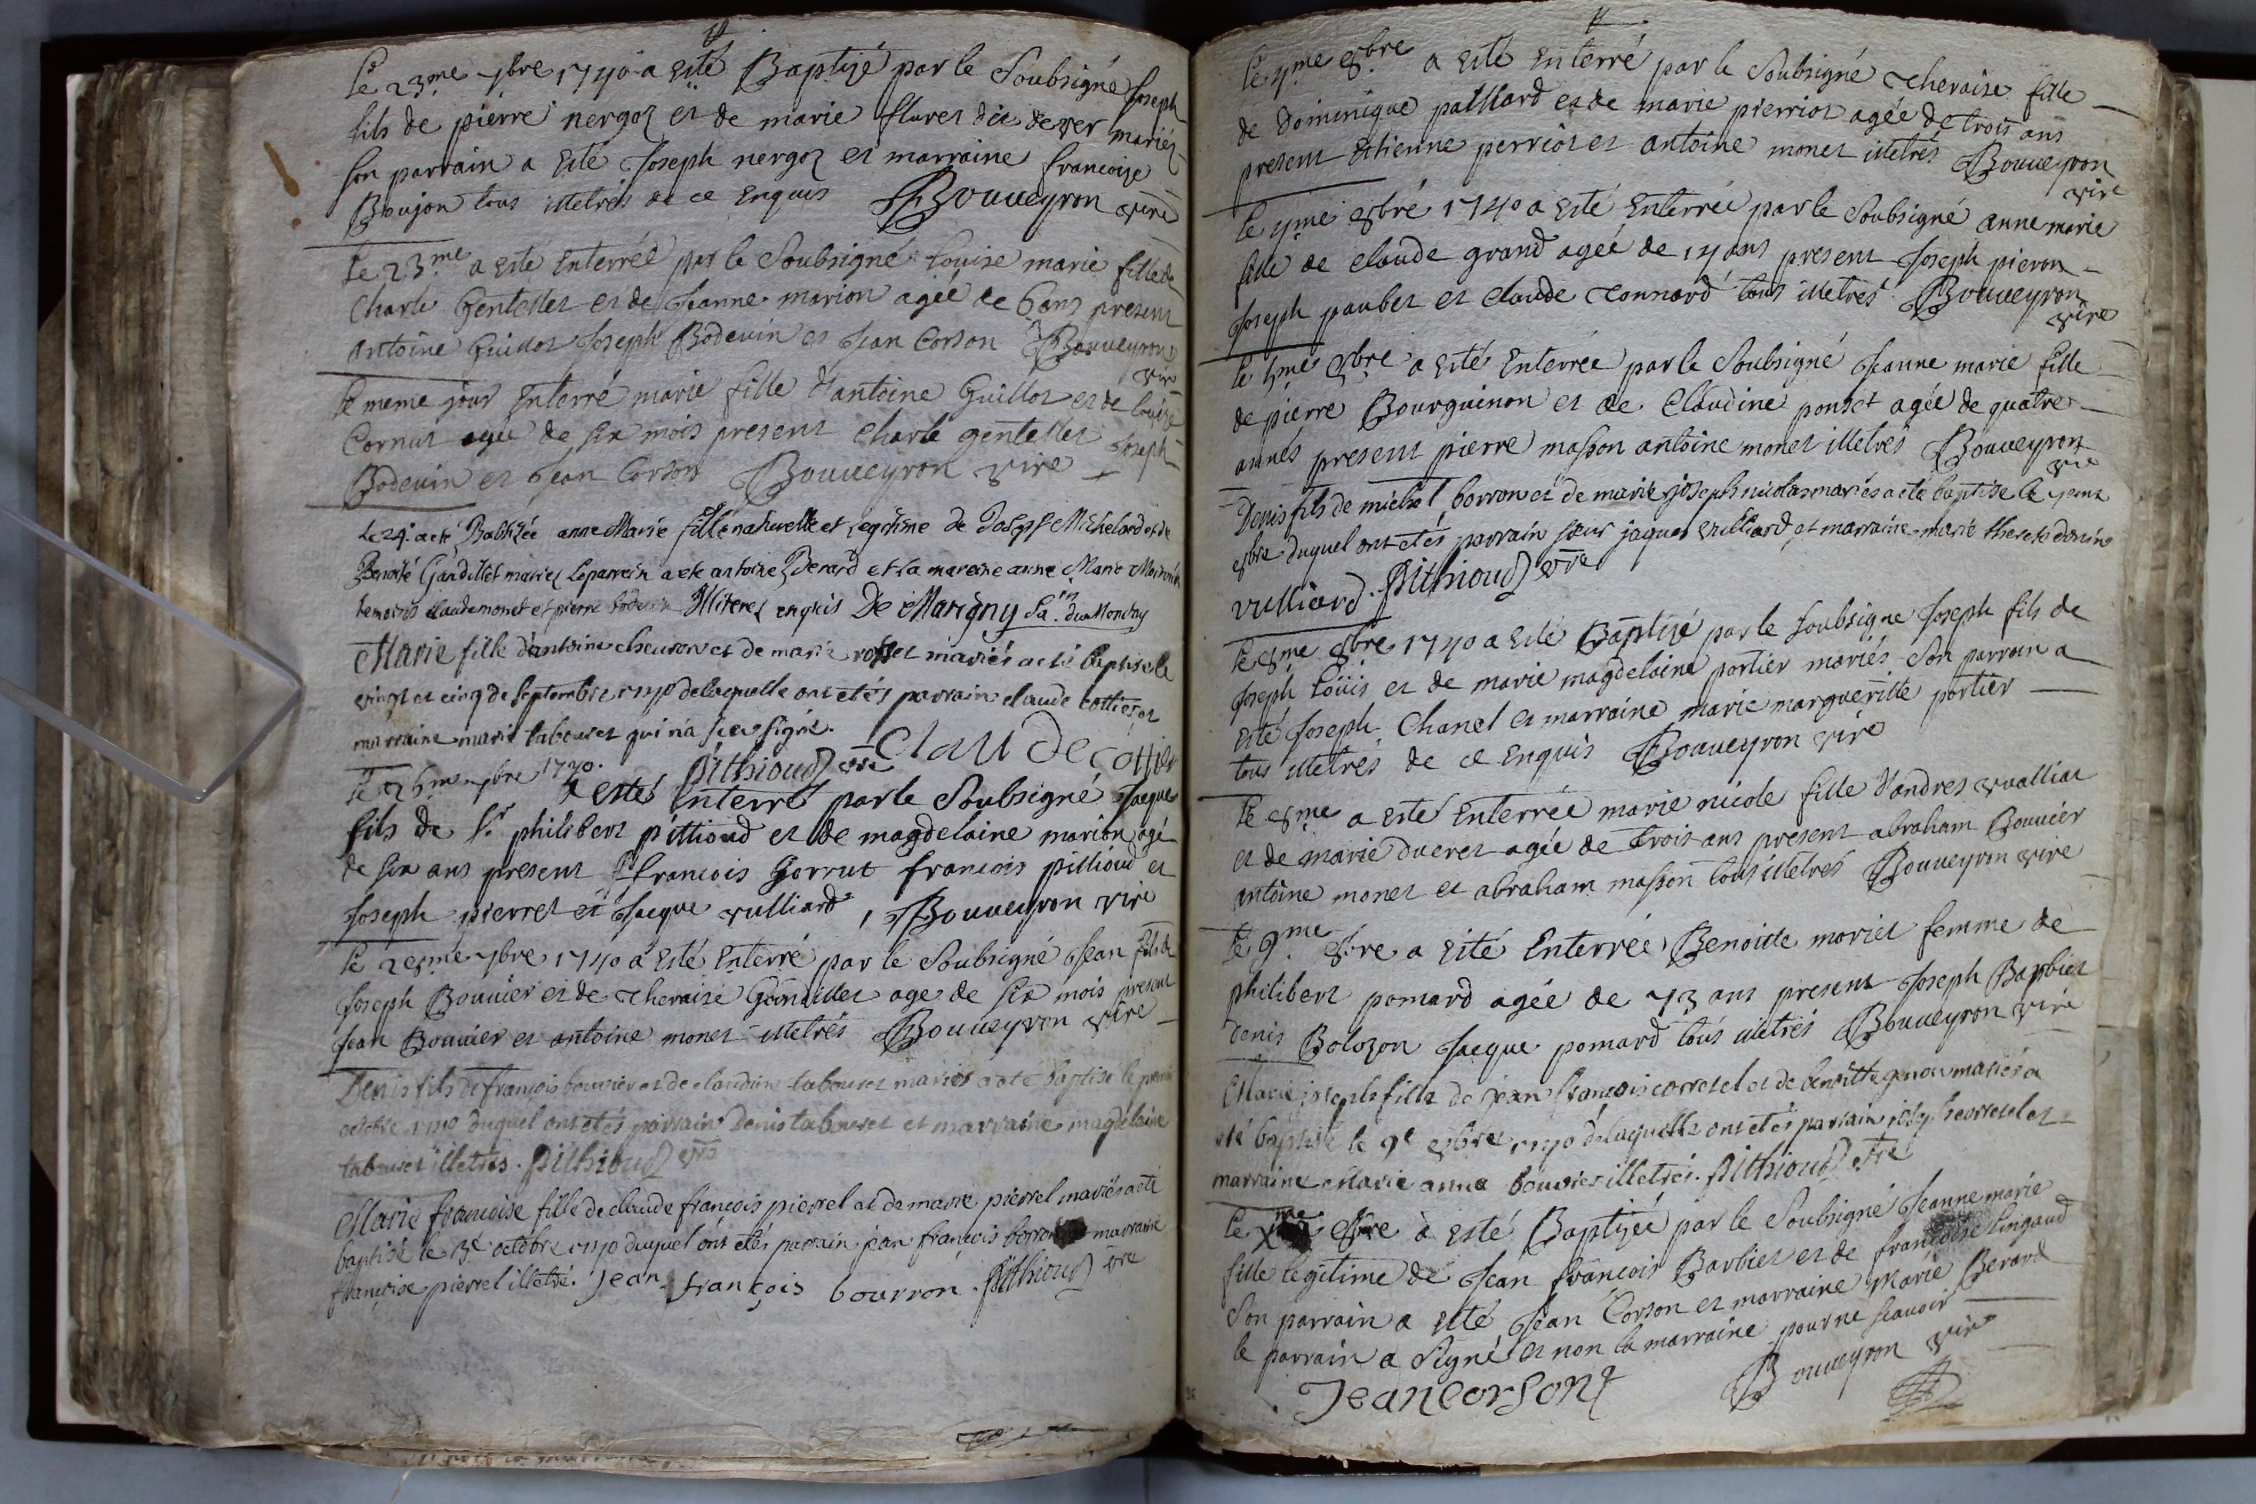 Le 23.me 7bre 1740 a esté Baptizé par le Soubsigné Joseph
fils de pierre nergoz et de marie fluret dit dever mariéz
son parrain a esté Joseph nergoz et marraine francoize
Boujon tous illetrés de ce enquis Bouueyron vire
Le 23.me a esté enterrée par le Soubsigné Louise marie fille de
Charle Gentellet et de Jeanne marion agée de 6 ans present
antoine Guillot Joseph Bodeuin et Jean Corson Bouueyron
vire
le meme jour Enterré marie fille d'antoine Guillot et de louise
Cornut agée de six mois present charle gentellet Joseph
Bodeuin et Jean Corson Bouueyron vire
Le 24. a eté Babtizée anne Marie fille naturelle et legitime de Joseph Michelard et de
Benoité Gandillet mariez le parrein a ete antoine Berard et la mareine anne Marie
temoins claude monet et pierre bodeuin Illiterez enquis De Marigny
Marie fille d'antoine cheuron et de marie rosset mariés a eté baptisée le
vingt et cinq de septembre 1740 de laquelle ont etés parrain claude cottier et
marraine marie tabouret qui n'a sceu signé.
Pithioud vre Claude cottier
Le 26me 7bre 1740.
a esté Enterré par le Soubsigné Jacque
fils de Sr philibert pittioud et de magdelaine marion agé
de six ans present Sr francois Gorrut francois pittioud et
Joseph pierrel et Jacque vulliard, Bouueyron vire
le 28me 7bre 1740 a esté Enterré par le Soubsigné Jean fils de
Joseph Bouuier et de Theraise Gandillet age de six mois present
Jean Bouuier et antoine monet illetrés Bouueyron vire
Denis fils de françois bouuier et de claudine tabouret mariés a eté baptisé le premier
octobre 1740 duquel ont etés parrain Denis tabouret et marraine magdelaine
tabouret illetrés. Pithioud vre
Marie francoise fille de claude françois pierrel et de marie pierrel mariés a eté
baptisée le 3e octobre 1740 duquel ont etés parrain jean françois borron et marraine
françoise pierrel illetré. Jean françois bourron. Pithioud vre
le 4me 8bre a esté enterré par le Soubsigné Theraise fille
de Dominique pailliard et de marie pierriot agée de trois ans
present Estienne perriot et antoine monet illetrés Bouueyron
vire
le 4me 8bre 1740 a esté Enterrée par le Soubsigné anne marie
fille de claude grand agée de 14 ans present Joseph pieron
Joseph paubet et claude Connard tous illetrés Bouueyron
vire
le 5me 8bre a estés Enterrée par le Soubsigné Jeanne marie fille
de pierre Bourguinon et de Claudine ponset agée de quatre
annés present pierre masson antoine monet illetrés Bouueyron
vire
Denis fils de michel borron et de marie joseph nicolas mariés a eté baptisé le
8bre duquel ont etés parrain sieur jaques vulliard et marraine marie therese
vulliard. Pithioud vre
Le 8me 8bre 1740 a esté Baptizé par le soubsigne Joseph fils de
Joseph Loüis et de marie magdelaine portier mariés son parrain a
esté Joseph Chanel et marraine marie margueritte portier
tous illetrés de ce enquis Bouueyron vire
Le 8me a esté Enterrée marie nicole fille d'andres vualliat
et de marie ducret agée de trois ans present abraham Bouuier
antoine monet et abraham masson tous illetres Bouueyron vire
Le 9.me 8bre a esté Enterrée Benoitte moriet femme de
philibert pomard agée de 73 ans present Joseph Barbiet
Denis Bolozon Jacque pomard tous illetrés Bouueyron vire
Marie joseph fille de jean françois corretel et de benoitte mariés a
eté baptisée le 9e 8bre 1740 de laquelle ont etés parrain joseph corretel et
marraine Marie anne bouvier illetrés. Pithioud vre
Le Xme 8bre a esté Baptizée par le Soubsigné Jeanne marie
fille legitime de Jean françois Barbiet et de françoise lingaud
Son parrain a esté Jean Corson et marraine Marie Berard
le parrain a signé et non la marraine pour ne scauoir
Jean corson Bouueyron vire